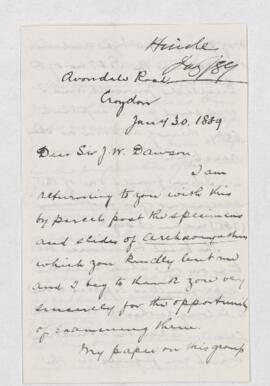 Hinde
Jan/89
Avondale Road
Croydon
Jany 30. 1889
Dear Sir J. W. Dawson
I am
returning to you with this
by parcels post the specimens
and slides of Archaeocyathus
which you kindly lent me
and I beg to thank you very
sincerely for the opportunity
of examining them.
My paper on this group